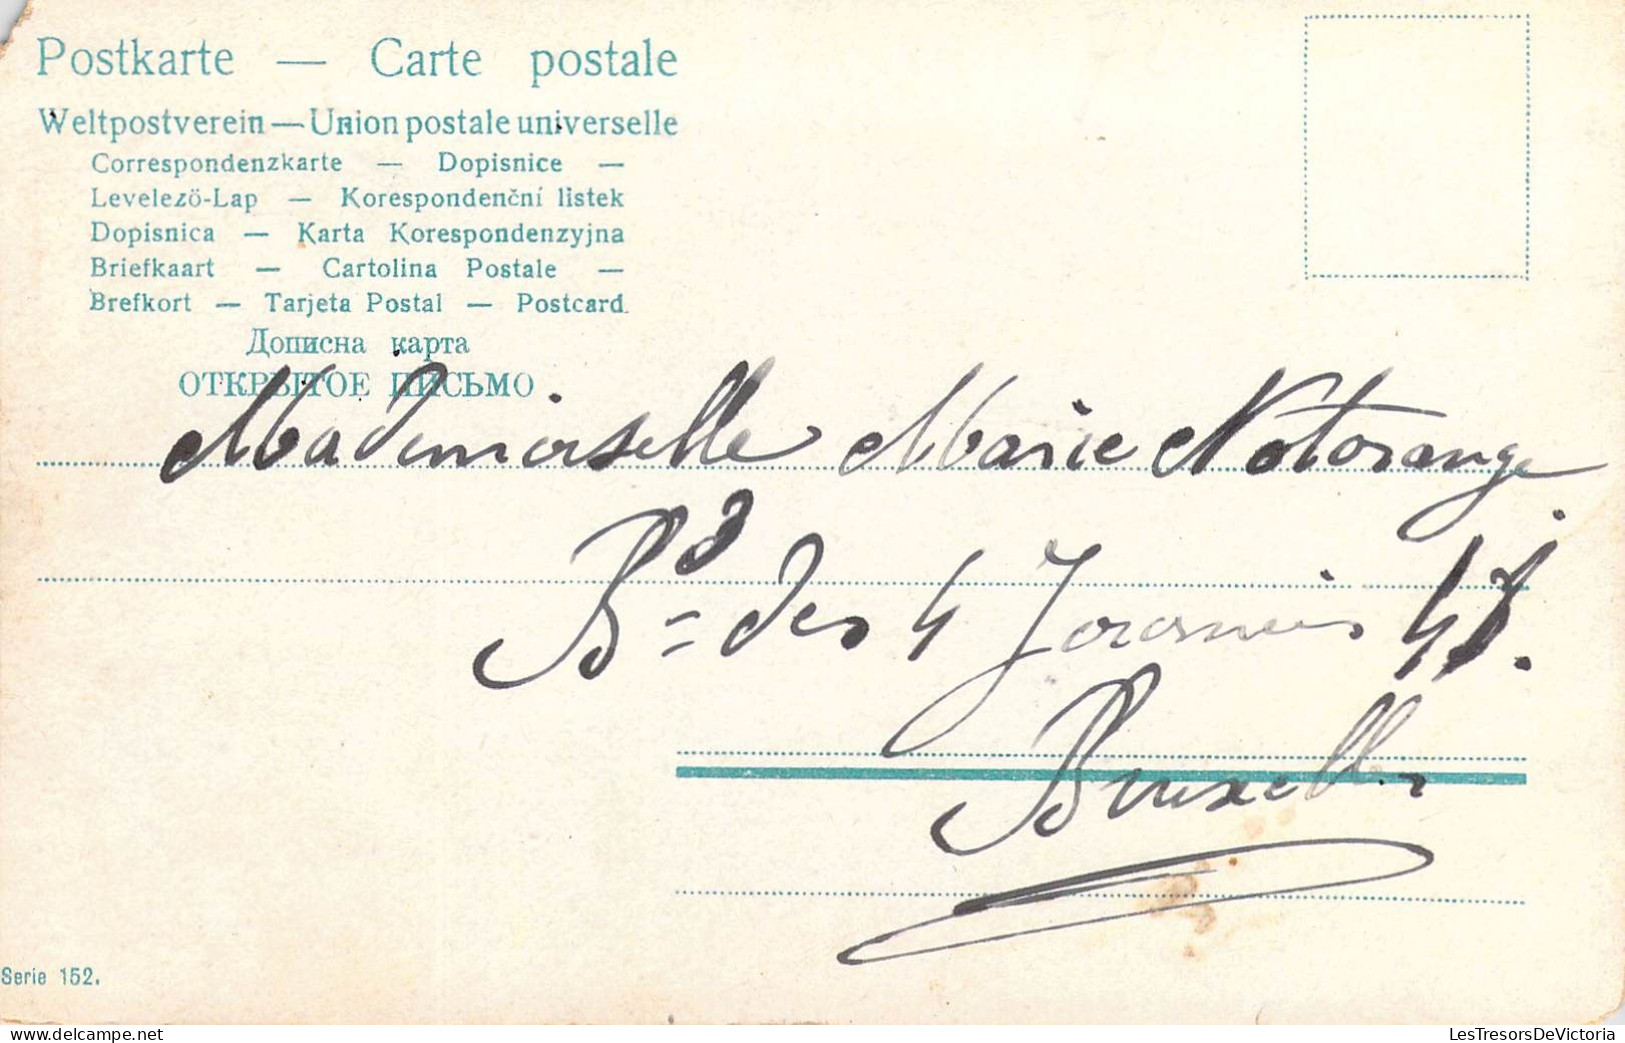 Postkarte — Carte postale
Weltpostverein — Union postale universelle
Correspondenzkarte — Dopisnice —
Levelező-Lap — Korespondenční listek
Dopisnica — Karta Korespondenzyjna
Briefkaart — Cartolina Postale —
Brefkort — Tarjeta Postal — Postcard.
Дописна карта
ОТКРЫТОЕ ПИСЬМО
Mademoiselle Marie Notorange
Bd des 4 Journeis
Bruxelles
Serie 152.
LesTresorsDeVictoria
www.delcampe.net